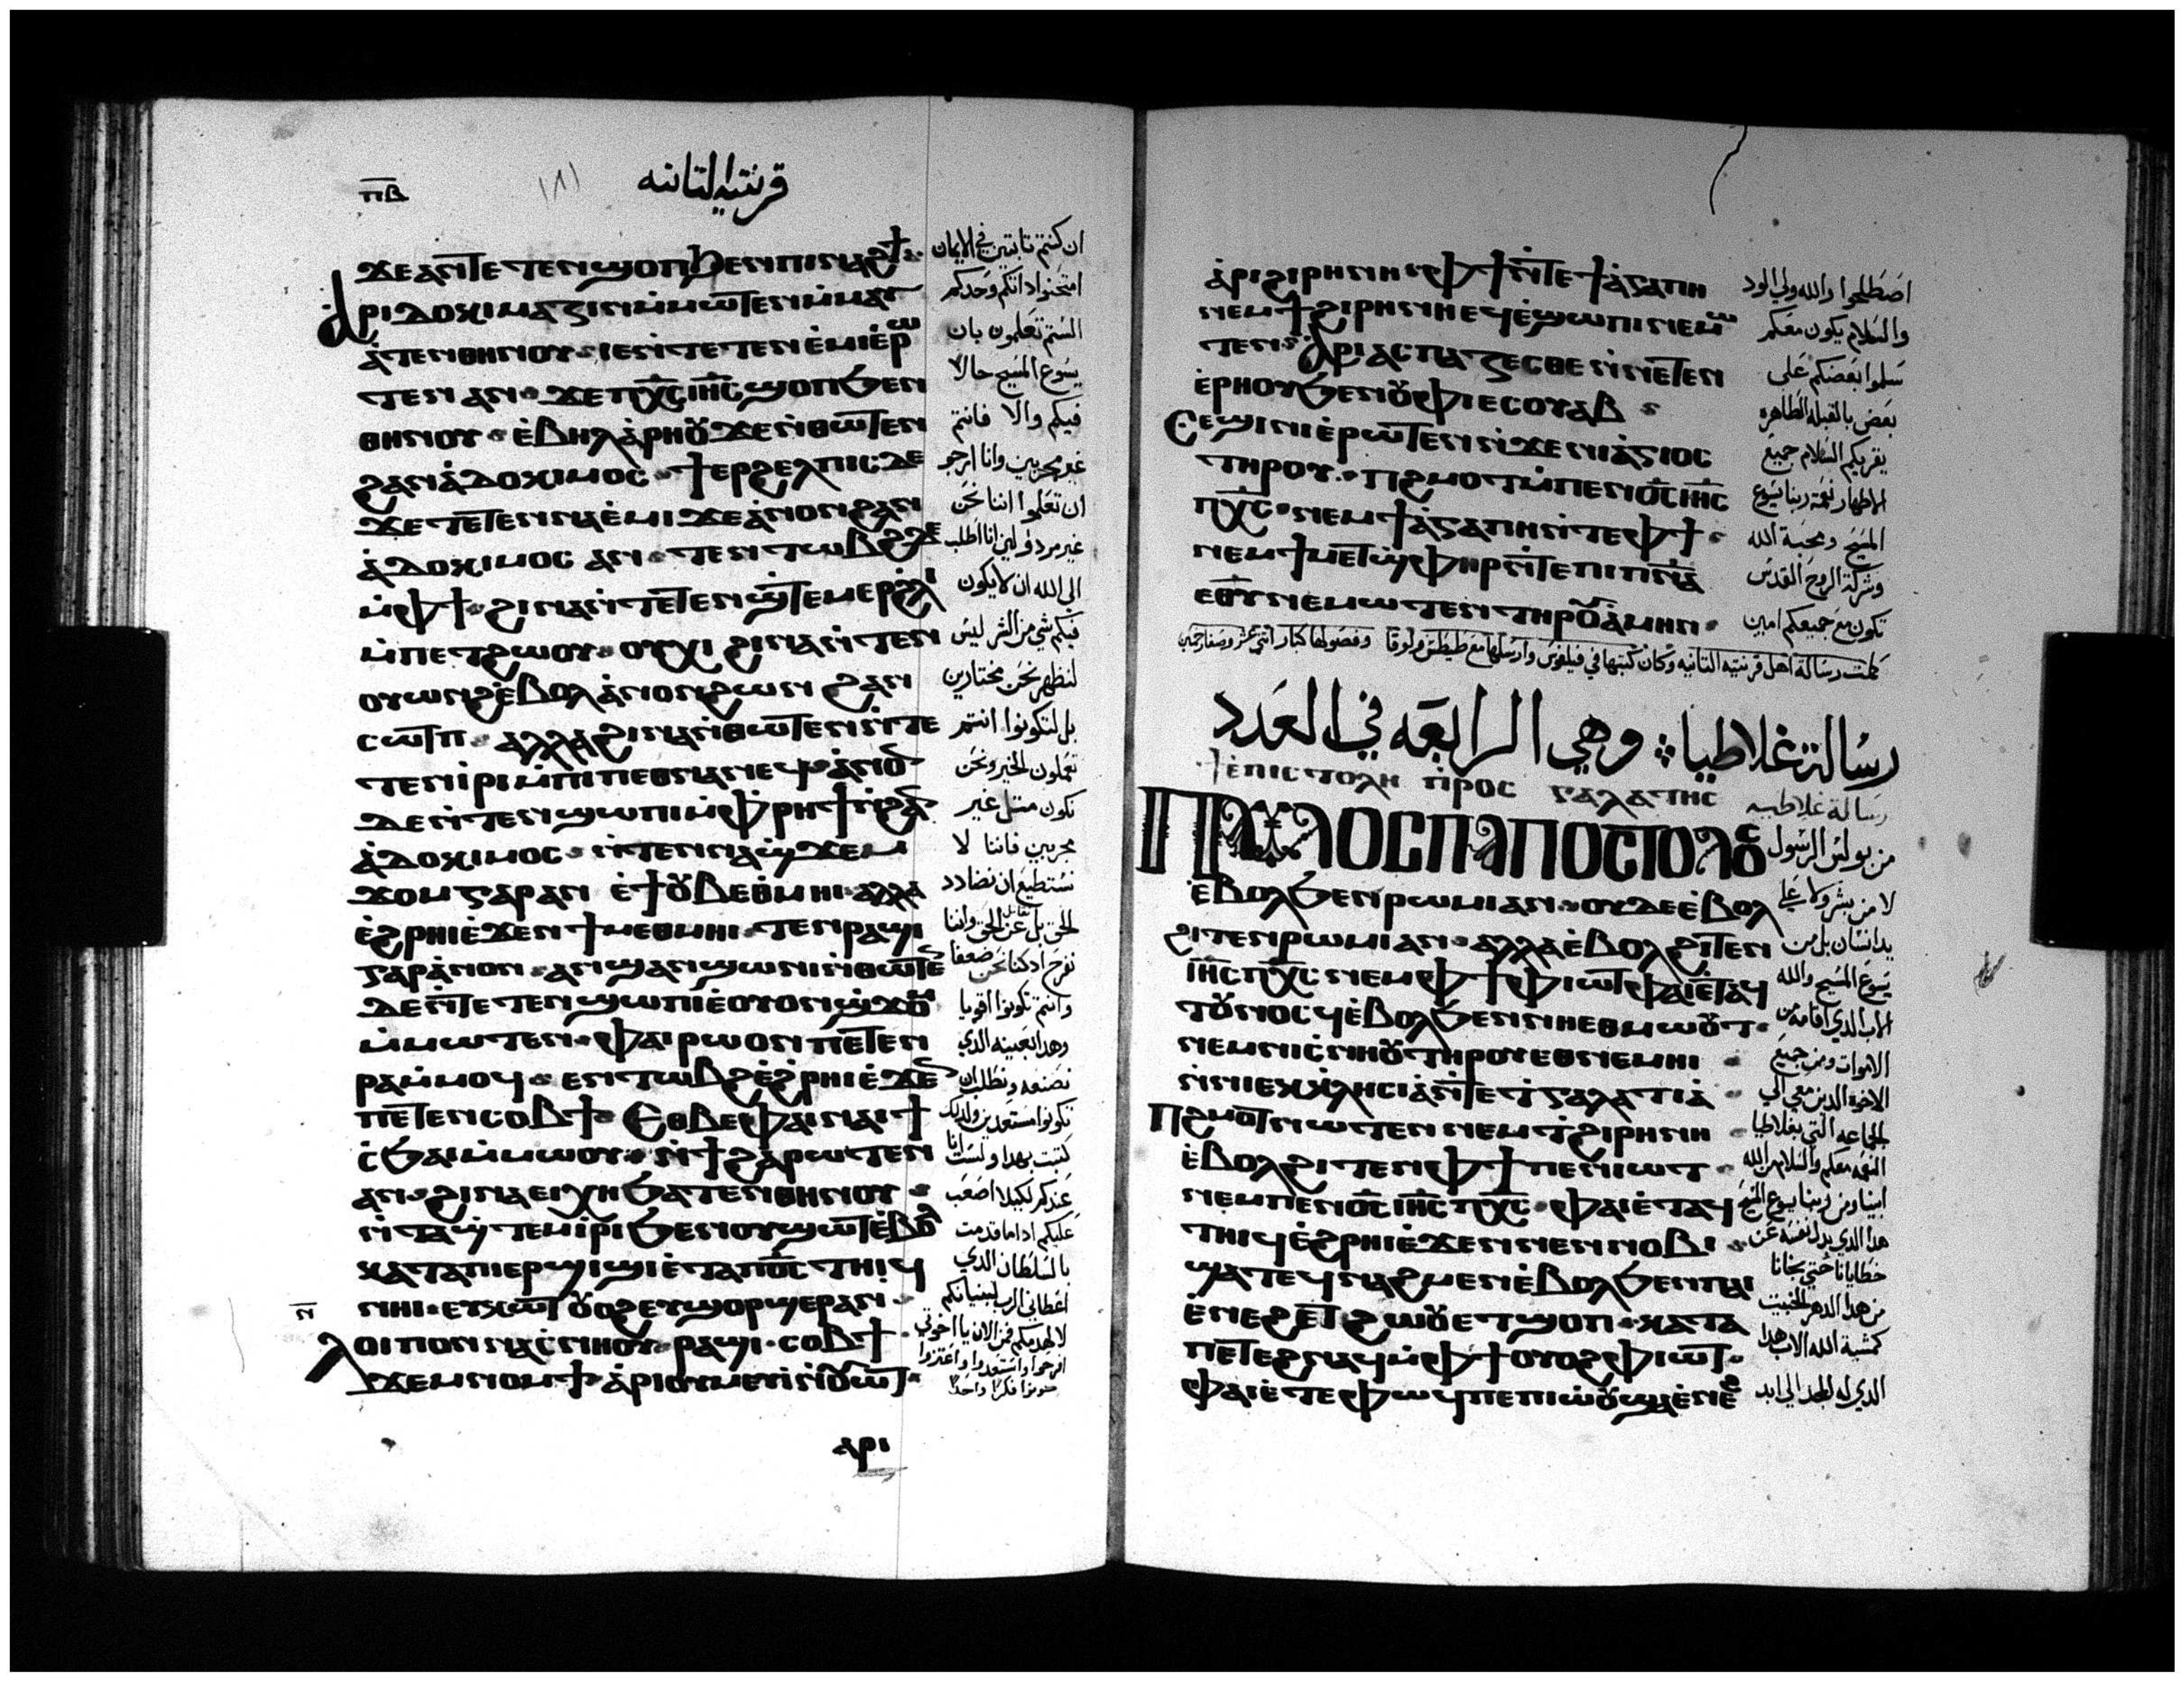 ⲡⲃ
قرنتيه التانيه
ϫⲉ ⲁⲛ ⲧⲉⲧⲉⲛϣⲟⲡ ϧⲉⲛ ⲡⲓⲛⲁϩϯ
ⲁⲣⲓⲇⲟⲕⲓⲙⲁⲍⲓⲛ ⲙⲙⲱⲧⲉⲛ ⲙⲙⲁⲩ
ⲁⲧⲉⲛⲑⲏⲛⲟⲩ ⲓⲉ ⲛⲧⲉⲧⲉⲛⲉⲙⲓ ⲉⲣⲱ
ⲧⲉⲛ ⲁⲛ ϫⲉ ⲡⲭⲥ ⲓⲏⲥ ϣⲟⲡ ϧⲉⲛ
ⲑⲏⲛⲟⲩ ⲉⲃⲏⲗ ⲁⲣⲏⲟⲩ ϫⲉ ⲛⲑⲱⲧⲉⲛ
ϩⲁⲛⲁⲇⲟⲕⲓⲙⲟⲥ ϯⲉⲣϩⲉⲗⲡⲓⲥ ⲇⲉ
ϫⲉ ⲧⲉⲧⲉⲛⲛⲁⲉⲙⲓ ϫⲉ ⲁⲛⲟⲛ ϩⲁⲛ
ⲁⲇⲟⲕⲓⲙⲟⲥ ⲁⲛ ⲧⲉⲛⲧⲱⲃϩ ⲇⲉ
ⲙⲫϯ ϩⲓⲛⲁ ⲛⲧⲉⲧⲉⲛϣⲧⲉⲙⲉⲣ ϩⲗⲓ
ⲙⲡⲉⲧϩⲱⲟⲩ ⲟⲩⲭⲓ ϩⲓⲛⲁ ⲛⲧⲉⲛ
ⲟⲩⲱⲛϩ ⲉⲃⲟⲗ ⲁⲛⲟⲛ ϩⲱⲛ ϩⲁⲛ
ⲥⲱⲧⲡ ⲁⲗⲗⲁ ϩⲓⲛⲁ ⲛⲑⲱⲧⲉⲛ ⲛⲧⲉ
ⲧⲉⲛⲓⲣⲓ ⲙⲡⲓⲡⲉⲑⲛⲁⲛⲉϥ ⲁⲛⲟⲛ
ⲇⲉ ⲛⲧⲉⲛϣⲱⲡⲓ ⲙⲫⲣⲏϯ ⲛϩⲁⲛ
ⲁⲇⲟⲕⲓⲙⲟⲥ ⲛⲧⲉⲛⲛⲁϣϫⲉⲙ
ϫⲟⲙ ⲅⲁⲣ ⲁⲛ ⲉϯⲟⲩⲃⲉ ⲑⲙⲏⲓ ⲁⲗⲗⲁ
ⲉϩⲣⲏⲓ ⲉϫⲉⲛ ϯⲙⲉⲑⲙⲏⲓ ⲧⲉⲛⲣⲁϣⲓ
ⲅⲁⲣ ⲁⲛⲟⲛ ⲁⲛϣⲁⲛϣⲱⲛⲓ ⲛⲑⲱⲧⲉⲛ
ⲇⲉ ⲛⲧⲉⲧⲉⲛϣⲱⲡⲓ ⲉⲟⲩⲟⲛ ϣϫⲟⲙ
ⲙⲙⲱⲧⲉⲛ ⲫⲁⲓ ϩⲱⲟⲛ ⲡⲉⲧⲉⲛ
ⲣⲁ ⲙⲙⲟϥ ⲉⲛⲧⲱⲃϩ ⲉϩⲣⲏⲓ ⲉϫⲉⲛ
ⲡⲉⲧⲉⲛⲥⲟⲃϯ ⲉⲑⲃⲉ ⲫⲁⲓ ⲛⲁⲓ ϯ
ⲥϧⲁⲓ ⲙⲙⲱⲟⲩ ⲛϯϩⲁⲣⲱⲧⲉⲛ
ⲁⲛ ϩⲓⲛⲁ ⲉⲓⲭⲏ ϧⲁⲧⲉⲛⲑⲏⲛⲟⲩ
ⲛⲧⲁϣⲧⲉⲙⲓⲣⲓ ϧⲉⲛ ⲟⲩϣⲱⲧ ⲉⲃⲟⲗ
ⲕⲁⲧⲁ ⲡⲓⲉⲣϣⲓϣⲓ ⲉⲧⲁ ⲡⲟⲥ ⲧⲏⲓϥ
ⲛⲏⲓ ⲉⲩⲕⲱⲧ ⲟⲩⲟϩ ⲉⲩϣⲟⲣϣⲉⲣ ⲁⲛ
ⲛ
ⲗⲟⲓⲡⲟⲛ ⲛⲁⲥⲛⲏⲟⲩ ⲣⲁϣⲓ ⲥⲟⲃϯ
ϫⲉⲙⲛⲟⲙϯ ⲁⲣⲓⲟⲩⲙⲉⲩⲓ ⲛⲟⲩⲱⲧ
ⲁⲣⲓ
ان كنتم تابتين في الايمان
امتحنوا داتكم وحدكم
الستم تعلمون بان
يسوع المسيح حالا
فيكم والا فانتم
غير مجربين وانا ارجو
ان تعلموا اننا نحن
غير مردولين انا اطلب
الى الله ان لا يكون
فيكم شي من الشر ليس
لنظهر نحن مختارين
بل لتكونوا انتم
تعملون الخير ونحن
نكون متل غير
مجربين فاننا لا
نستطيع ان نضادد
الحق بل عن الحق واننا
نفرح اد كنا نحن ضعفا
وانتم تكونوا اقويا
وهدا بعينه الدي
نصنعه ونطلب ان
تكونوا مستعدين ولدلك
كتبت بهدا ولست انا
عندكم لكيلا اصعب
عليكم اداما قدمت
بالسلطان الدي
اعطاني الرب لبنيانكم
لا لهدمكم فمن الان يا اخوتي
افرحوا واستعدوا واعتزوا
ⲁⲣⲓϩⲓⲣⲏⲛⲏ ⲫϯ ⲛⲧⲉ ϯⲁⲅⲁⲡⲏ
ⲛⲉⲙ ϯϩⲓⲣⲏⲛⲏ ⲉϥⲉϣⲱⲡⲓ ⲛⲉⲙⲱ
ⲧⲉⲛ ⲁⲣⲓⲁⲥⲡⲁⲍⲉⲥⲑⲉ ⲛⲛⲉⲧⲉⲛ
ⲉⲣⲏⲟⲩ ϧⲉⲛ ⲟⲩⲫⲓ ⲉⲥⲟⲩⲁⲃ
ⲥⲉϣⲓⲛⲓ ⲉⲣⲱⲧⲉⲛ ⲛϫⲉ ⲛⲓⲁⲅⲓⲟⲥ
ⲧⲏⲣⲟⲩ ⲡϩⲙⲟⲧ ⲙⲡⲉⲛⲟⲥ ⲓⲏⲥ
ⲡⲭⲥ ⲛⲉⲙ ϯⲁⲅⲁⲡⲏ ⲛⲧⲉ ⲫϯ
ⲛⲉⲙ ϯⲙⲉⲧϣⲫⲏⲣ ⲛⲧⲉ ⲡⲓⲡⲛⲁ
ⲉⲑⲩ ⲛⲉⲙⲱⲧⲉⲛ ⲧⲏⲣⲟⲩ ⲁⲙⲏⲛ
اصطلحوا والله ولي الود
والسلام يكون معكم
سلموا بعضكم على
بعض بالقبله الطاهره
يقريكم السلام جميع
الاطهار نعمة ربنا يسوع
المسيح ومحبة الله
وشركة الروح القدس
تكون مع جميعكم امين
كملت رسالة اهل قرنتيه التانيه وكان كتبها في فيلفوس وارسلها مع طيطس ولوقا وفصولها كبار اتني عشر
رسالة غلاطيا وهي الرابعه في العدد
ϯⲉⲡⲓⲥⲧⲟⲗⲏ ⲡⲣⲟⲥ ⲅⲁⲗⲁⲧⲏⲥ رسالة غلاطيه
ⲡⲁⲩⲗⲟⲥ ⲡⲁⲡⲟⲥⲧⲟⲗⲟⲥ
ⲉⲃⲟⲗ ϧⲉⲛ ⲣⲱⲙⲓ ⲁⲛ ⲟⲩⲇⲉ ⲉⲃⲟⲗ
ϩⲓⲧⲉⲛ ⲣⲱⲙⲓ ⲁⲛ ⲁⲗⲗⲁ ⲉⲃⲟⲗ ϩⲓⲧⲉⲛ
ⲓⲏⲥ ⲡⲭⲥ ⲛⲉⲙ ⲫϯ ⲫⲓⲱⲧ ⲫⲁⲓ ⲉⲧⲁϥ
ⲧⲟⲩⲛⲟⲥϥ ⲉⲃⲟⲗ ϧⲉⲛ ⲛⲏ ⲉⲑⲙⲱⲟⲩⲧ
ⲛⲉⲙ ⲛⲓⲥⲛⲏⲟⲩ ⲧⲏⲣⲟⲩ ⲉⲑⲛⲉⲙⲏⲓ
ⲛⲛⲓⲉⲕⲕⲗⲏⲥⲓⲁ ⲛⲧⲉ ϯⲅⲁⲗⲁⲧⲓⲁ
ⲡϩⲙⲟⲧ ⲛⲱⲧⲉⲛ ⲛⲉⲙ ⲧϩⲓⲣⲏⲛⲏ
ⲉⲃⲟⲗ ϩⲓⲧⲉⲛ ⲫϯ ⲡⲉⲛⲓⲱⲧ
ⲛⲉⲙ ⲡⲉⲛⲟⲥ ⲓⲏⲥ ⲡⲭⲥ ⲫⲁⲓ ⲉⲧⲁϥ
ⲧⲏⲓϥ ⲉϩⲣⲏⲓ ⲉϫⲉⲛ ⲛⲉⲛⲛⲟⲃⲓ
ϣⲁⲧⲉϥⲛⲁϩⲙⲉⲛ ⲉⲃⲟⲗ ϧⲉⲛ ⲡⲁⲓ
ⲉⲛⲉϩ ⲉⲧϩⲱⲟⲩ ⲉⲧϣⲟⲡ ⲕⲁⲧⲁ
ⲡⲉⲧⲉϩⲛⲁϥ ⲙⲫϯ ⲟⲩⲟϩ ⲫⲓⲱⲧ
ⲫⲁⲓ ⲉⲧⲉ ⲫⲱϥ ⲡⲉ ⲡⲓⲱⲟⲩ ϣⲁ ⲉⲛⲉϩ
من بولس الرسول
لا من بشر ولا على
يد انسان بل من
يسوع المسيح والله
الاب الدي اقامه من
الاموات ومن جميع
الاخوه الدين معي الى
الجماعه التي بغلاطيا
النعمه معكم والسلام من الله
ابينا ومن ربنا يسوع المسيح
هدا الدي بدل نفسه عن
خطايانا حتي نجانا
من هدا الدهر الخبيت
كمشية الله الاب هدا
الدي له المجد الى ابد